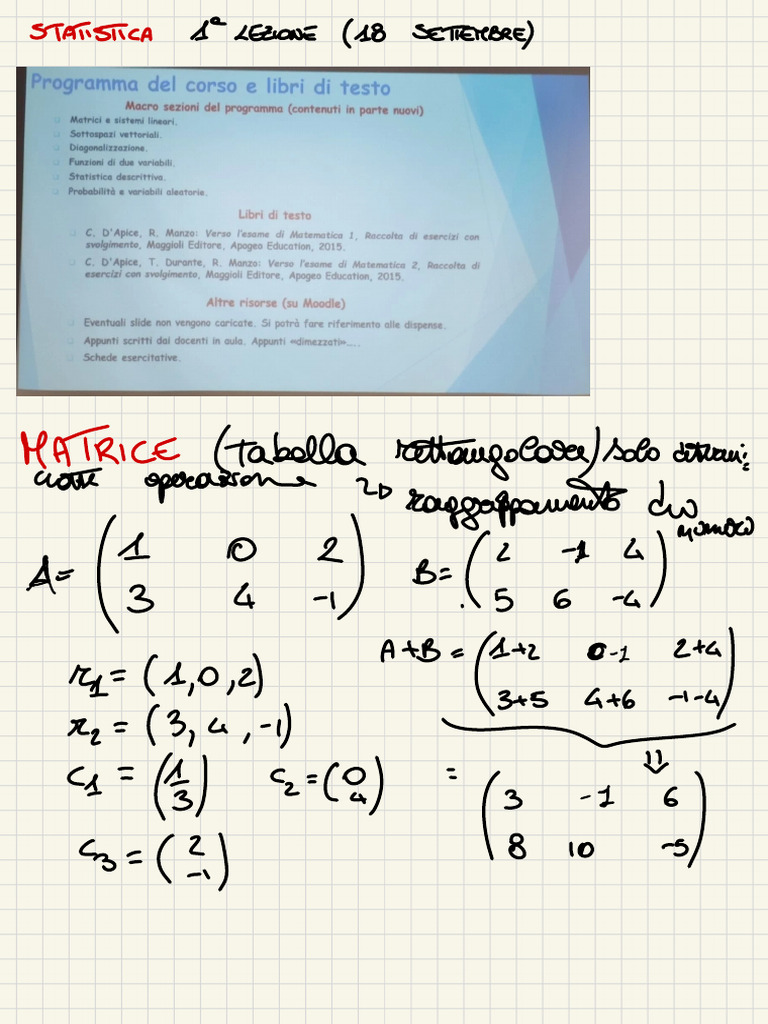 STATISTICA 1ª LEZIONE (18 SETTEMBRE)
Programma del corso e libri di testo
Macro sezioni del programma (contenuti in parte nuovi)
Matrici e sistemi lineari.
Sottospazi vettoriali.
Diagonalizzazione.
Funzioni di due variabili.
Statistica descrittiva.
Probabilità e variabili aleatorie.
Libri di testo
C. D'Apice, R. Manzo: Verso l'esame di Matematica 1, Raccolta di esercizi con
svolgimento, Maggioli Editore, Apogeo Education, 2015.
C. D'Apice, T. Durante, R. Manzo: Verso l'esame di Matematica 2, Raccolta di
esercizi con svolgimento, Maggioli Editore, Apogeo Education, 2015.
Altre risorse (su Moodle)
Eventuali slide non vengono caricate. Si potrà fare riferimento alle dispense.
Appunti scritti dai docenti in aula. Appunti «dimezzati»....
Schede esercitative.
MATRICE (tabella rettangolare) solo
operazione raggruppamento
A = (1 0 2
3 4 -1)
B = (2 -1 4
5 6 -4)
A+B = (1+2 0-1 2+4
3+5 4+6 -1-4)
r1 = (1,0,2)
r2 = (3,4,-1)
c1 = (1
3) c2 = (0
4)
c3 = (2
-1)
⇓
= (3 -1 6
8 10 -5)